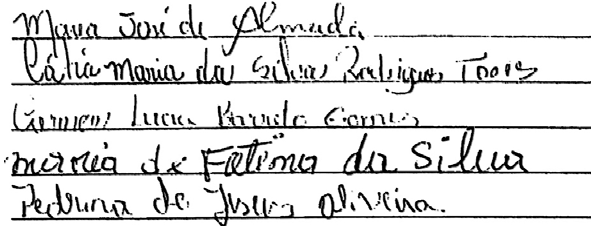 Maria José de Almada
Cátia Maria da Silva Rodrigues
Carmen Lucia Gomes
maria de Fatima da Silva
de Jesus Oliveira.